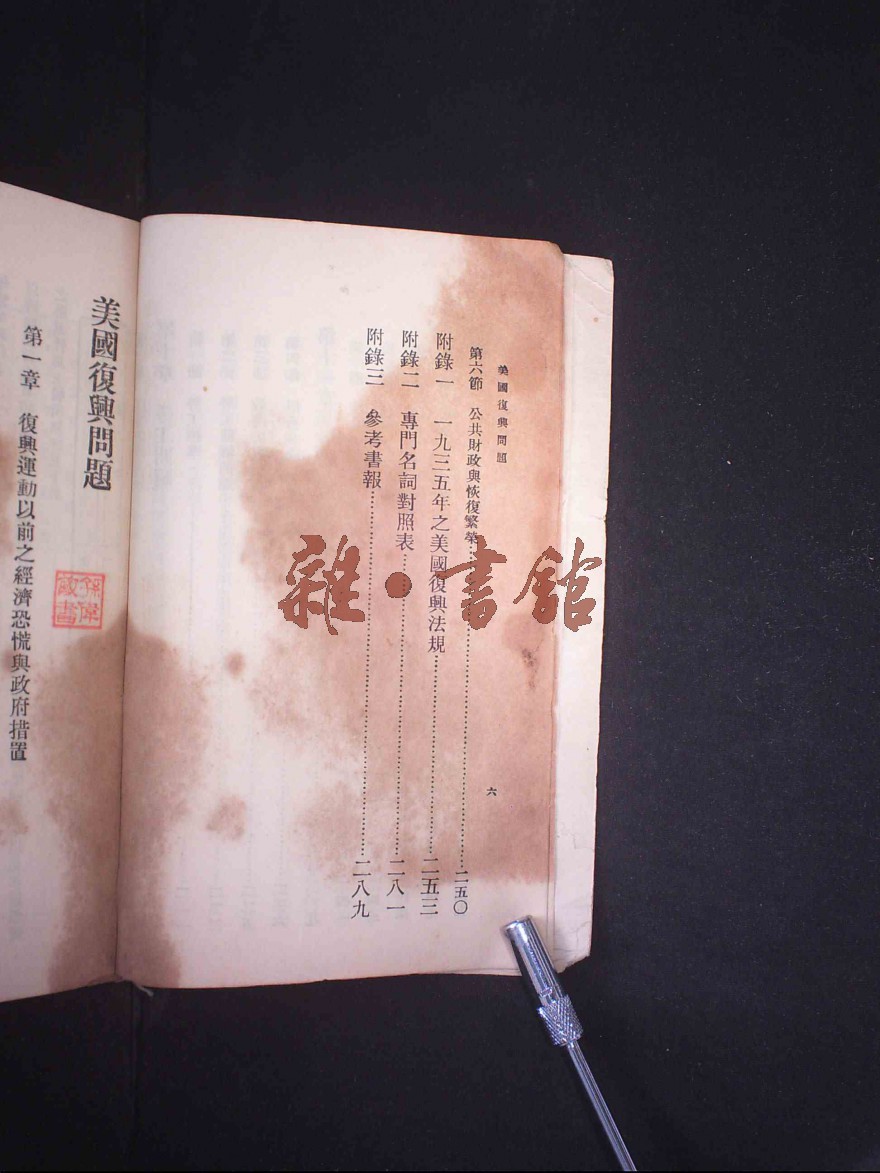 美國復興問題
第六節 公共財政與恢復繁榮……二五〇
附錄一 一九三五年之美國復興法規……二五三
附錄二 專門名詞對照表……二八一
附錄三 參考書報……二八九
六
美國復興問題
第一章 復興運動以前之經濟恐慌與政府措置
雜·書館